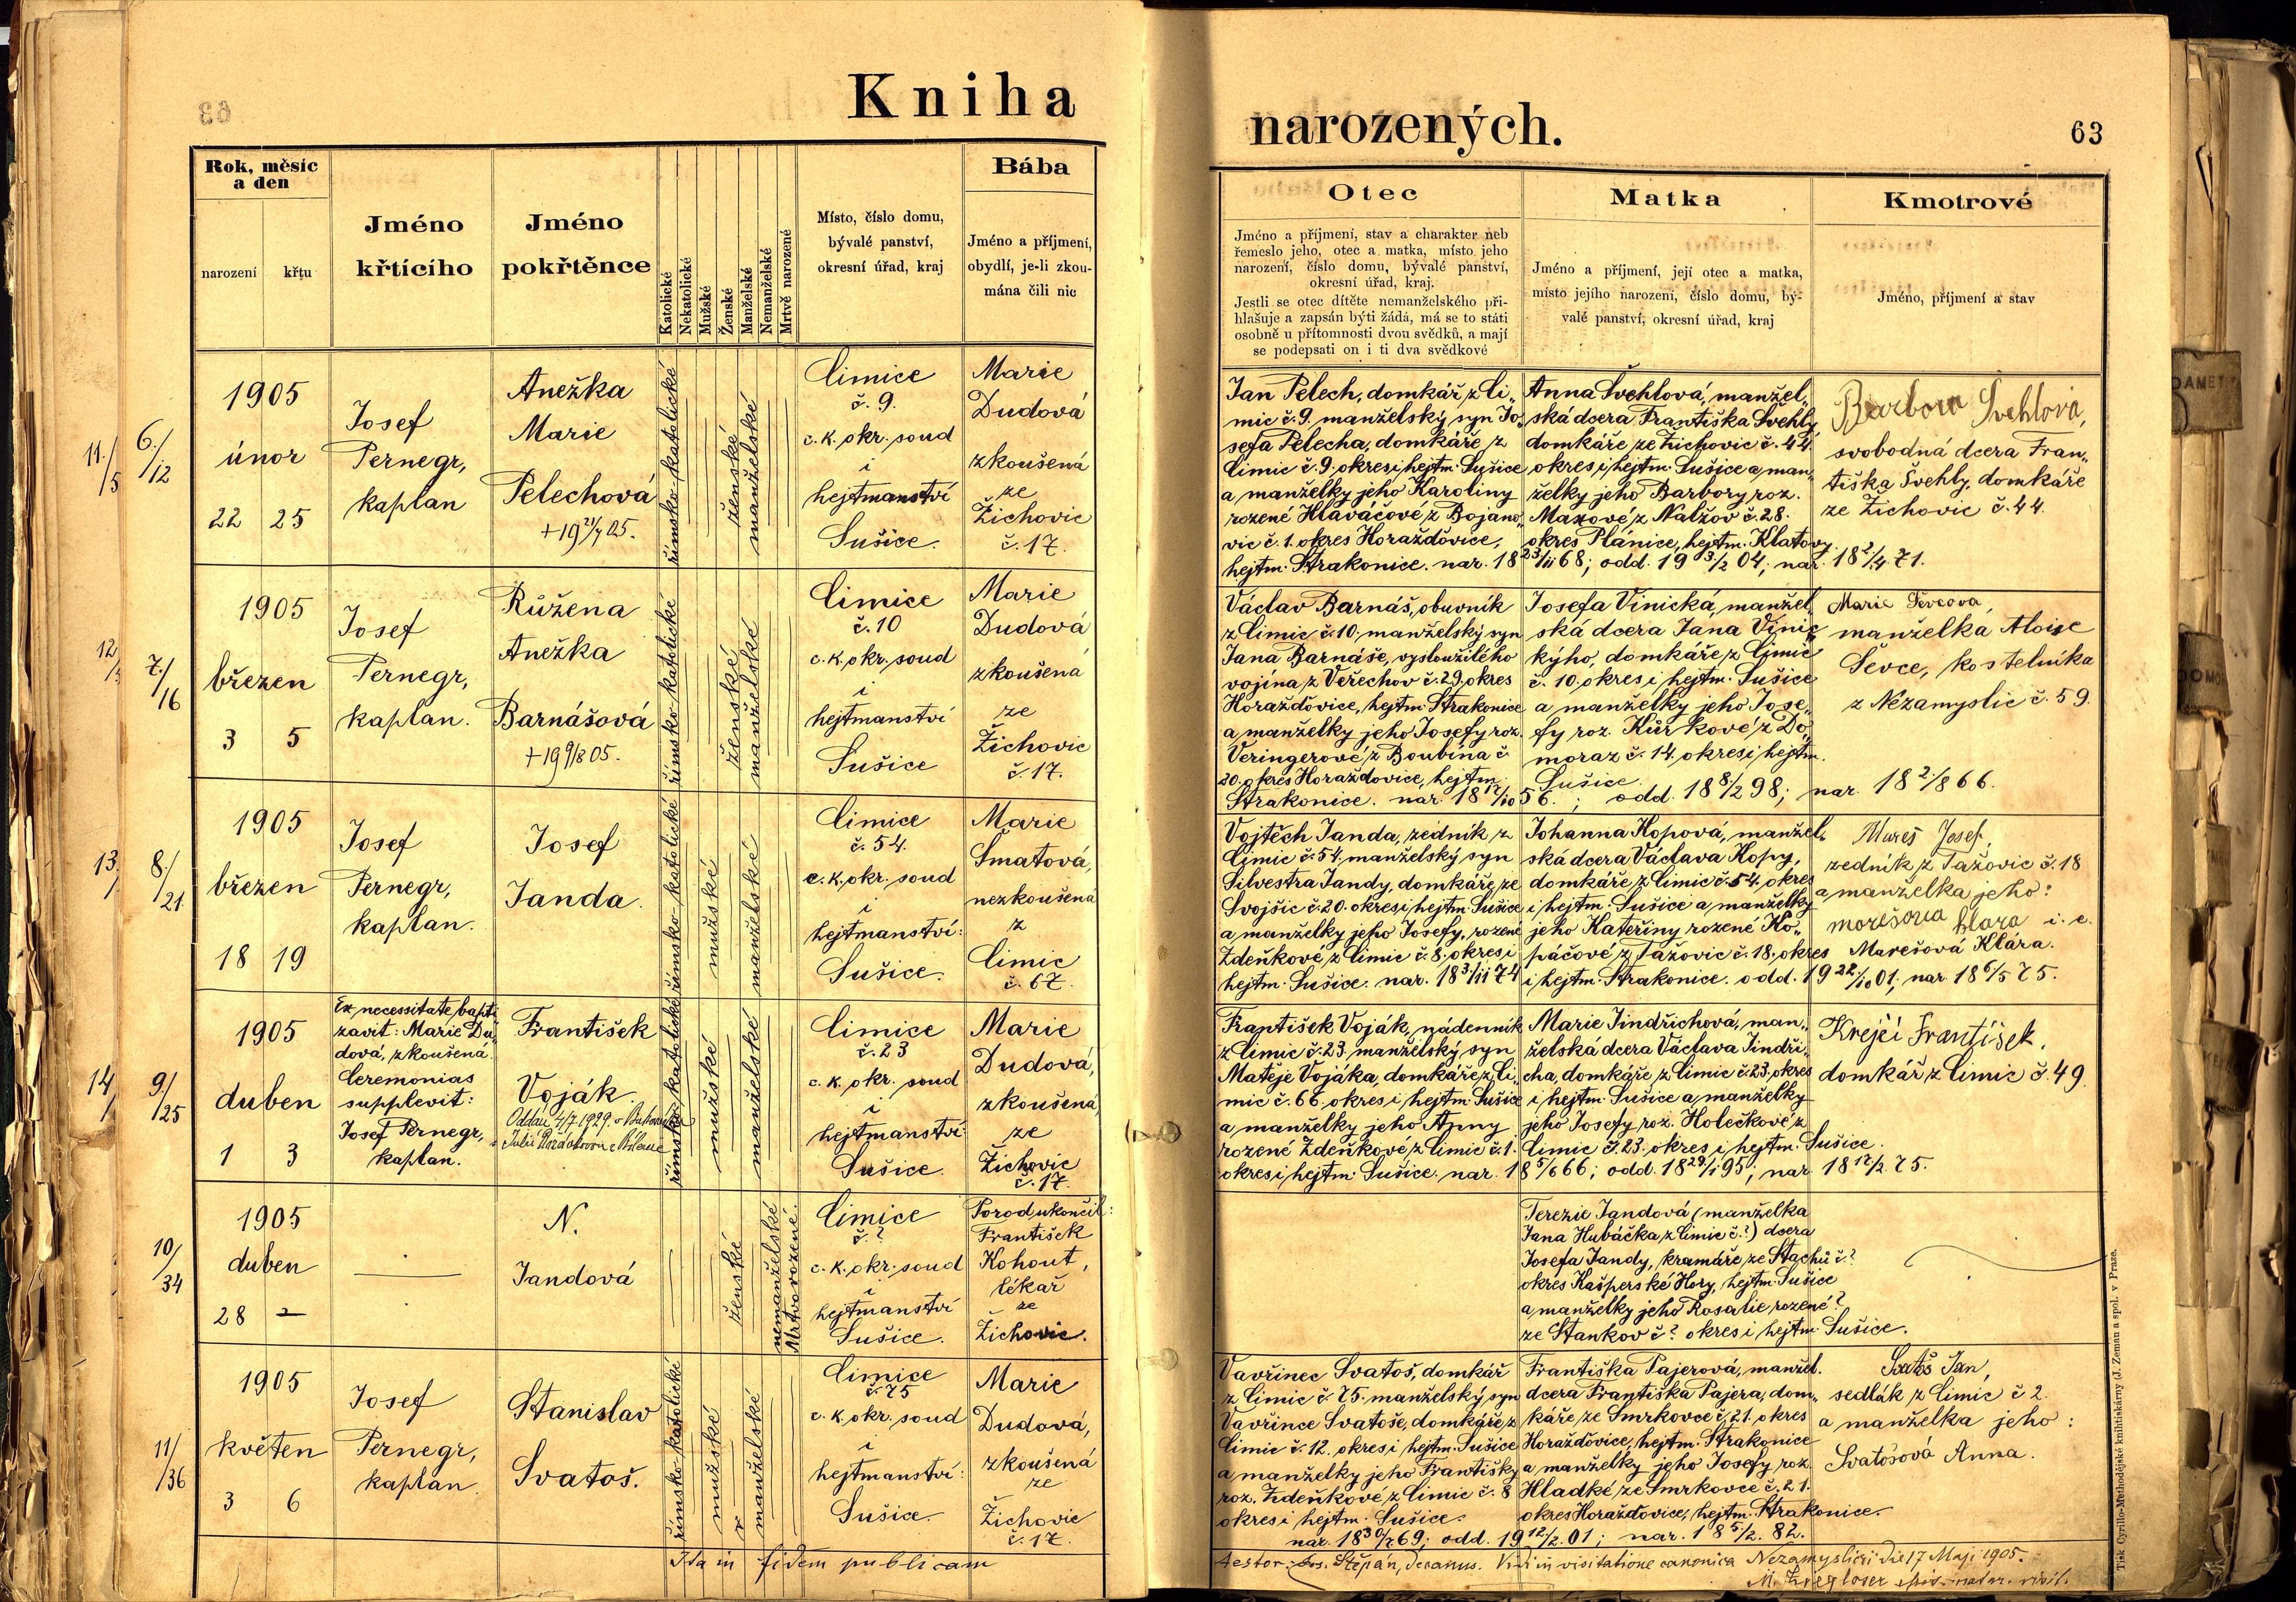 Kniha
narozených.
63
Rok, měsíc
a den
narození
křtu
Jméno
křtícího
Jméno
pokřtěnce
Katolické
Nekatolické
Mužské
Ženské
Manželské
Nemanželské
Mrtvě narozené
Místo, číslo domu,
bývalé panství,
okresní úřad, kraj
Bába
Jméno a příjmení,
obydlí, je-li zkou-
mána čili nic
Otec
Jméno a příjmení, stav a charakter neb
řemeslo jeho, otec a matka, místo jeho
narození, číslo domu, bývalé panství,
okresní úřad, kraj.
Jestli se otec dítěte nemanželského při-
hlašuje a zapsán býti žádá, má se to státi
osobně u přítomnosti dvou svědků, a mají
se podepsati on i ti dva svědkové
Matka
Jméno a příjmení, její otec a matka,
místo jejího narození, číslo domu, bý-
valé panství, okresní úřad, kraj
Kmotrové
Jméno, příjmení a stav
11./5
6./12
1905
únor
22 25
Josef
Pernegr,
kaplan
Anežka
Marie
Pelechová
+19 21/7 05.
římsko-katolické
ženské
manželské
Čimice
č. 9.
c. k. okr. soud
i
hejtmanství
Sušice.
Marie
Dudová
zkoušená
ze
Žichovic
č. 17.
Jan Pelech, domkář z Či„
mic č. 9. manželský syn Jo„
sefa Pelecha, domkáře z
Čimic č. 9. okres i hejtm. Sušice
a manželky jeho Karoliny
rozené Hlaváčové z Bojano„
vic č. 1. okres Horažďovice,
hejtm. Strakonice. nar. 18 23/11 68; odd. 19 3/2 04; nar. 18 2/4 71.
Anna Švehlová, manžel„
ská dcera Františka Švehly
domkáře ze Žichovic č. 44.
okres i hejtm. Sušice a man„
želky jeho Barbory roz.
Maxové z Nalžov č. 28.
okres Plánice, hejtm. Klatovy
Barbora Švehlová,
svobodná dcera Fran„
tiška Švehly, domkáře
ze Žichovic č. 44.
12
7./16
1905
březen
3 5
Josef
Pernegr,
kaplan.
Růžena
Anežka
Barnášová
+19 9/8 05.
římsko-katolické
ženské
manželské
Čimice
č. 10
c. k. okr. soud
i
hejtmanství
Sušice
Marie
Dudová
zkoušená
ze
Žichovic
č. 17.
Václav Barnáš, obuvník
z Čimic č. 10. manželský syn
Jana Barnáše, vysloužilého
vojína z Veřechov č. 29. okres
Horažďovice, hejtm. Strakonice
a manželky jeho Josefy roz.
Veringerové z Boubína č.
20. okres Horažďovice, hejtm.
Strakonice. nar. 18 17/10 56.; odd. 18 8/2 98; nar. 18 2/8 66.
Josefa Vinická, manžel„
ská dcera Jana Vinic„
kýho, domkáře z Čimic
č. 10. okres i hejtm. Sušice
a manželky jeho Jose„
fy roz. Kůrkové z Do„
moraz č. 14. okres i hejtm.
Sušice.
Marie Ševcová,
manželka Aloise
Ševce, kostelníka
z Nezamyslic č. 59.
13
8/21
1905
březen
18 19
Josef
Pernegr,
kaplan.
Josef
Janda.
římsko-katolické
mužské
manželské
Čimice
č. 54.
c. k. okr. soud
i
hejtmanství:
Sušice.
Marie
Šmatová,
nezkoušená
z
Čimic
č. 67.
Vojtěch Janda, zedník z
Čimic č. 54. manželský syn
Silvestra Jandy, domkáře ze
Svojšic č. 20. okres i hejtm. Sušice
a manželky jeho Josefy, rozené
Zdeňkové z Čimic č. 8. okres i
hejtm. Sušice. nar. 18 3/11 74
Johanna Kopová, manžel„
ská dcera Václava Kopy,
domkáře z Čimic č. 54. okres
i hejtm. Sušice a manželky
jeho Kateřiny rozené Ko„
páčové z Tažovic č. 18. okres
i hejtm. Strakonice. odd. 19 22/10 01; nar. 18 6/5 75.
Mareš Josef,
zedník z Tažovic č. 18
a manželka jeho:
marešova klara i. e.
Marešová Klára.
14
9/25
1905
duben
1 3
Ex necessitate bapti
zavit: Marie Du„
dová, zkoušená.
Ceremonias
supplevit:
Josef Pernegr,
kaplan.
František
Voják.
Oddán 4/7 1929.
římsko-katolické
mužské
manželské
Čimice
č. 23
c. k. okr. soud
i
hejtmanství:
Sušice.
Marie
Dudová,
zkoušená,
ze
Žichovic
č. 17.
František Voják, nádenník
z Čimic č. 23. manželský syn
Matěje Vojáka, domkáře z Či„
mic č. 66. okres i hejtm. Sušice
a manželky jeho Anny
rozené Zdeňkové z Čimic č. 1.
okres i hejtm. Sušice. nar. 18 5/6 66; odd. 18 29/1 95; nar. 18 17/2 75.
Marie Jindřichová, man„
želská dcera Václava Jindři„
cha, domkáře z Čimic č. 23. okres
i hejtm. Sušice a manželky
jeho Josefy roz. Holečkové z
Čimic č. 23. okres i hejtm. Sušice.
Krejčí František,
domkář z Čimic č. 49.
10/34
1905
duben
28 –
N.
Jandová
ženské
nemanželské
Mrtvorozené
Čimice
č. ?
c. k. okr. soud
i
hejtmanství
Sušice.
Porod ukončil:
František
Kohout,
lékař
ze
Žichovic.
Terezie Jandová (manželka
Jana Hubáčka z Čimic č. ?) dcera
Josefa Jandy, kramáře ze Stachů č. ?
okres Kašperské Hory, hejtm. Sušice
a manželky jeho Rosalie, rozené ?
ze Stankov č. ? okres i hejtm. Sušice.
11/36
1905
květen
3 6
Josef
Pernegr,
kaplan.
Stanislav
Svatoš.
římsko-katolické
mužské
manželské
Čimice
č. 75
c. k. okr. soud
i
hejtmanství:
Sušice.
Marie
Dudová,
zkoušená
ze
Žichovic
č. 17.
Vavřinec Svatoš, domkář
z Čimic č. 75. manželský syn
Vavřince Svatoše, domkáře z
Čimic č. 12. okres i hejtm. Sušice
a manželky jeho Františky
roz. Zdeňkové z Čimic č. 8
okres i hejtm. Sušice.
nar. 18 30/7 69; odd. 19 12/2 01; nar. 18 5/2. 82.
Františka Pajerová, manžel.
dcera Františka Pajera, dom„
káře ze Smrkovce č. 21. okres
Horažďovice, hejtm. Strakonice
a manželky jeho Josefy roz.
Hladké ze Smrkovce č. 21.
okres Horažďovice, hejtm. Strakonice.
Svatoš Jan,
sedlák z Čimic č 2.
a manželka jeho:
Svatošová Anna.
Ita in fidem publicam
testor: Jos. Štěpán, decanus. Vidi in visitatione canonica Nezamyslicii die 17 Maji 1905.
Tisk Cyrillo-Methodějské knihtiskárny (J. Zeman a spol. v Praze.